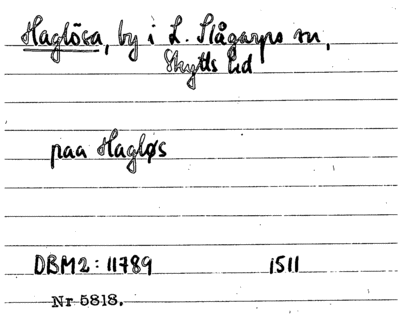 Haglösa, by i L. Slågarps sn,
Skytts hd
paa Hagløs
DBM2: 11789 1511
Nr 5818.